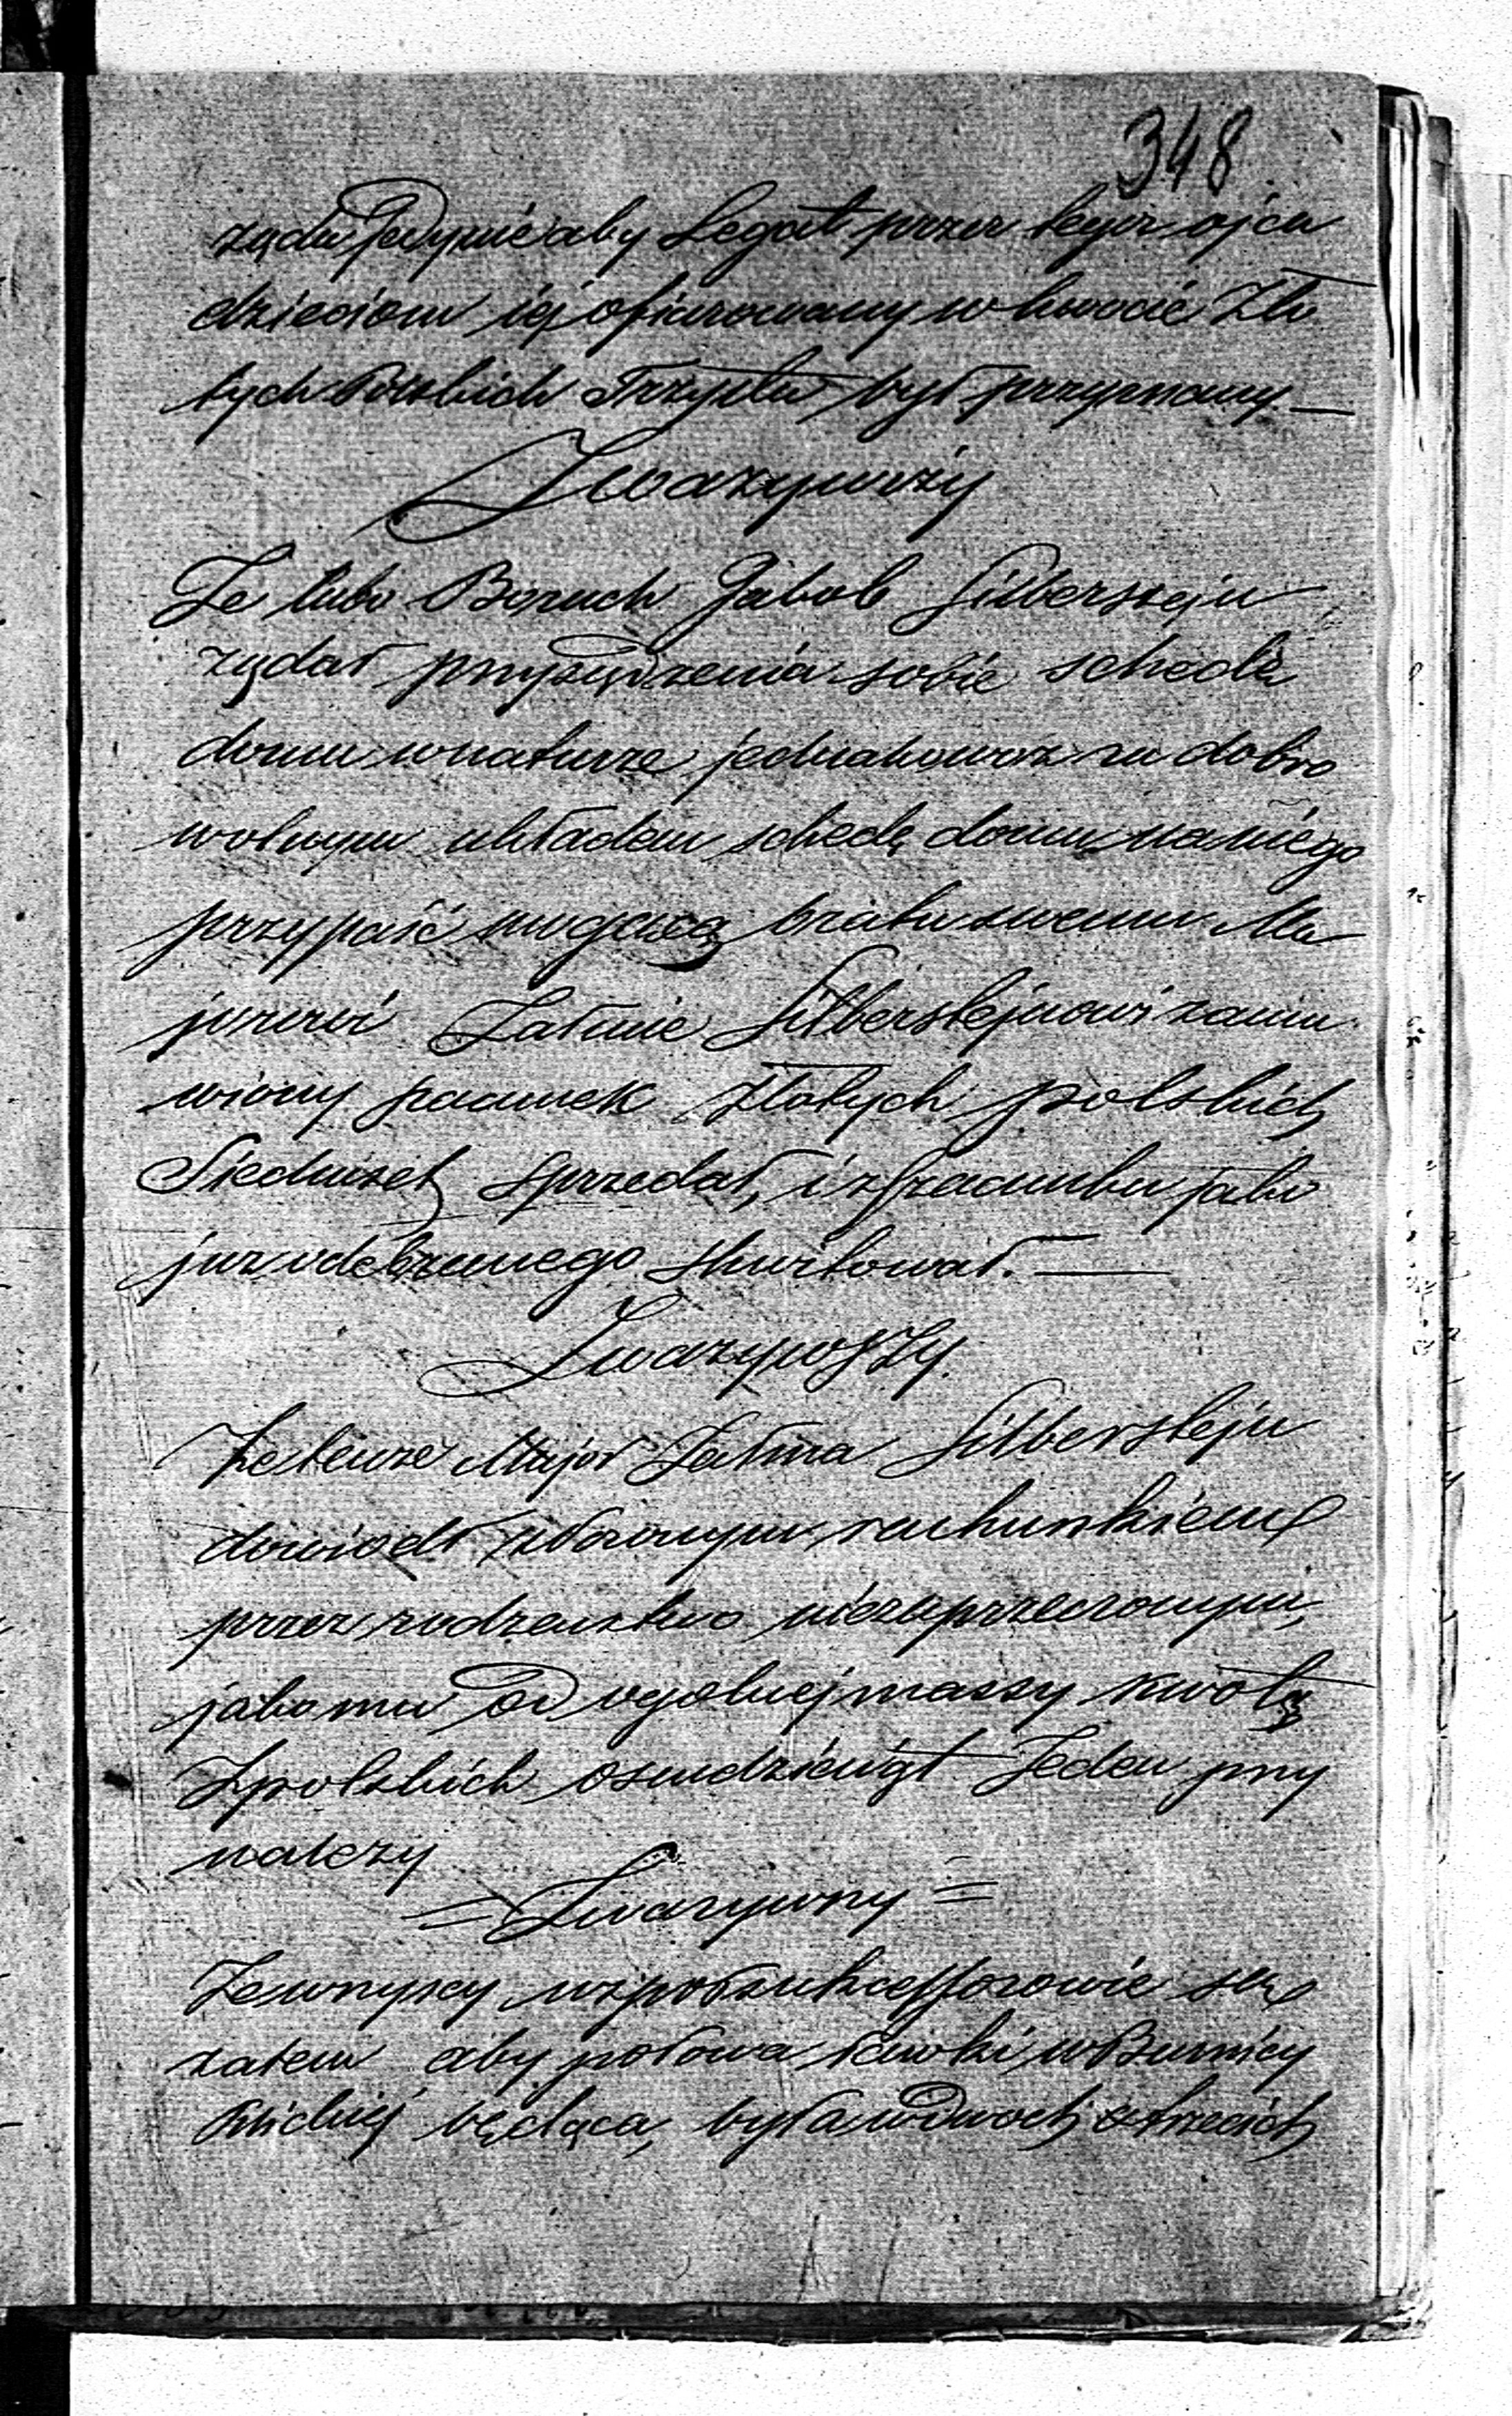 348
rząda jedynie aby Legat przez tegoż ojca
dzieciom iéj ofiarowany w kwocie Zło
tych Polskich Trzysta był przyznany —
Zważywszy
Że lubo Boruch Jakob Silbersztejn
rządał przysądzenia sobie schedę
domu w naturze jednakowoż za dobro
wolnym układem schedę domu na niego
przypaść mogącą bratu swemu Ma
jorowi Załmie Silbersztejnowi za umu
wiony szacunek Złotych polskich
Siedmset sprzedał, i z szacunku jako
juz odebranego skwitował. —
Zważywszy.
Że tenże Major Załma Silbersztejn
dowiodł złożonym rachunkiem
przez rodzeństwo niezaprzeczonym,
jako mu od ogolnej massy kwota
Zpolskich osmdziesiąt Jeden przy
należy
= Zważywszy =
Że wszyscy wspołsukcessorowie są
zatem aby połowa ławki w Buznicy
będąca, była w dwoch trzecich